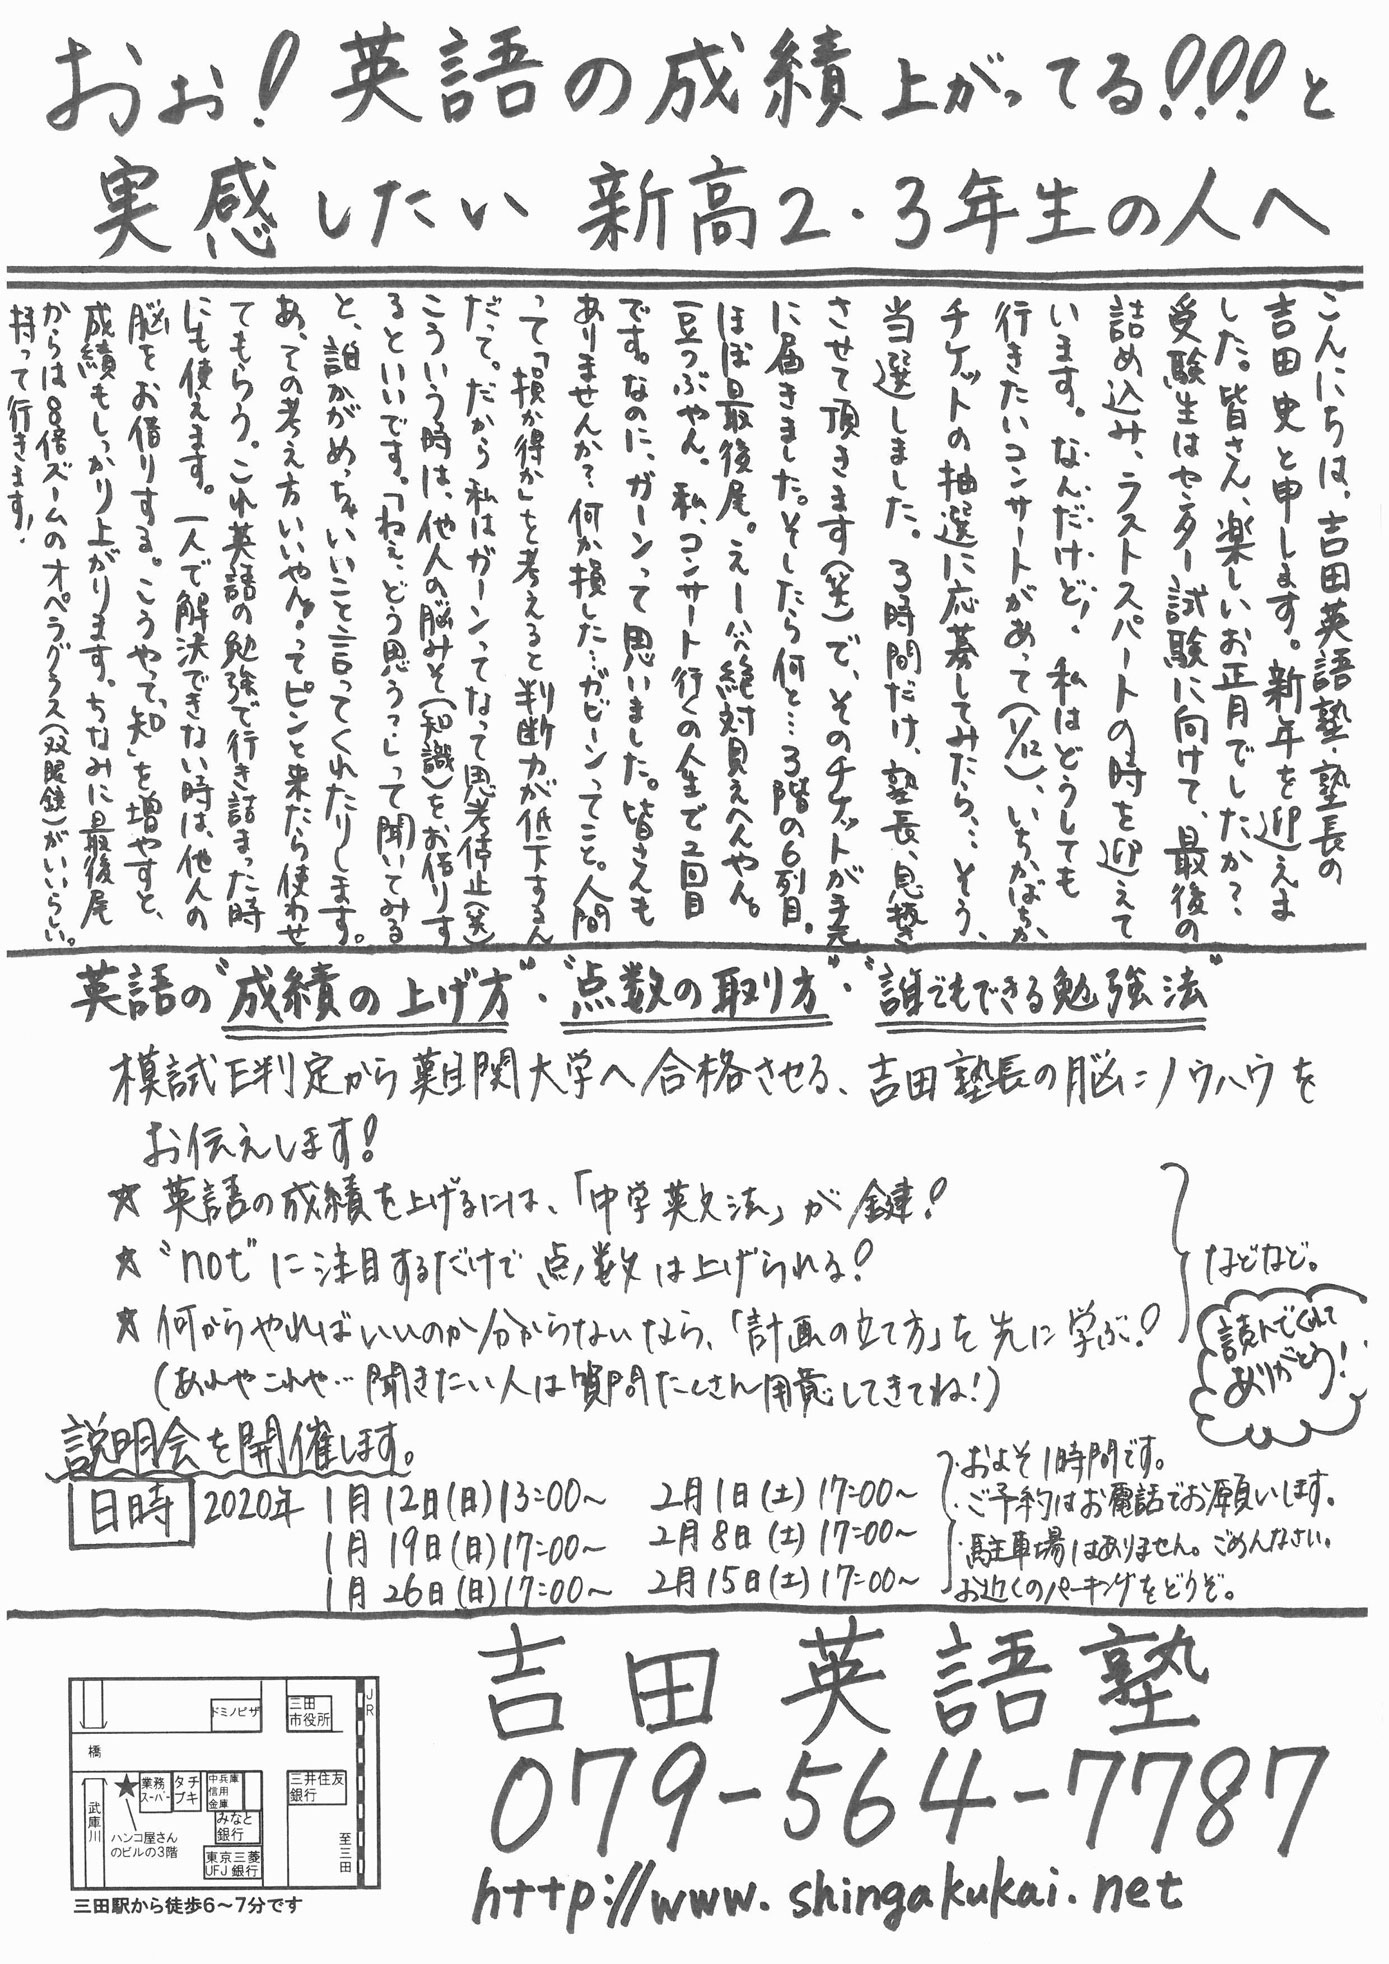 おぉ!英語の成績上がってる!!!と
実感したい 新高2・3年生の人へ
こんにちは、吉田英語塾・塾長の
吉田 史と申します。新年を迎えま
した。皆さん、楽しいお正月でしたか?
受験生はセンター試験に向けて、最後の
詰め込み、ラストスパートの時を迎えて
います。なんだけど、私はどうしても
行きたいコンサートがあって(1/12)、いちかばちか
チケットの抽選に応募してみたら、…そう、
当選しました。3時間だけ、塾長、息抜き
させて頂きます(笑)で、そのチケットが手元
に届きました。そしたら何と…3階の6列目。
ほぼ最後尾。えーっ!絶対見えへんやん。
豆つぶやん。私、コンサート行くの人生で2回目
です。なのに、ガーンって思いました。皆さんも
ありませんか?何か損した…ガビーンってこと。人間
って「損か得か」を考えると判断力が低下するん
だって。だから私はガーンってなって思考停止(笑)
こういう時は、他人の脳みそ(知識)をお借りす
るといいです。「ねぇ、どう思う?」って聞いてみる
と、誰かがめっちゃいいこと言ってくれたりします。
あ、その考え方いいやん!ってピンと来たら使わせ
てもらう。これ英語の勉強で行き詰まった時
にも使えます。一人で解決できない時は、他人の
脳をお借りする。こうやって、「知」を増やすと、
成績もしっかり上がります。ちなみに最後尾
からは8倍ズームのオペラグラス(双眼鏡)がいいらしい。
持って行きます!
英語の"成績の上げ方"・"点数の取り方"・"誰でもできる勉強法"
模試E判定から難関大学へ合格させる、吉田塾長の脳にノウハウを
お伝えします!
★ 英語の成績を上げるには、「中学英文法」が鍵!
★ "not"に注目するだけで点数は上げられる!
★ 何からやればいいのか分からないなら、「計画の立て方」を先に学ぶ!
(あれやこれや… 聞きたい人は質問たくさん用意してきてね!)
などなど。
読んでくれて
ありがとう!
説明会を開催します。
日時 2020年 1月12日(日)13:00~ 2月1日(土)17:00~
1月19日(日)17:00~ 2月8日(土)17:00~
1月26日(日)17:00~ 2月15日(土)17:00~
・およそ1時間です。
・ご予約はお電話でお願いします。
・駐車場はありません。ごめんなさい。
お近くのパーキングをどうぞ。
吉田英語塾
079-564-7787
http://www.shingakukai.net
JR
ドミノピザ
三田
市役所
橋
武庫川
★
業務
スーパー
タチ
ブキ
中兵庫
信用
金庫
三井住友
銀行
みなと
銀行
東京三菱
UFJ銀行
ハンコ屋さん
のビルの3階
至三田
三田駅から徒歩6~7分です